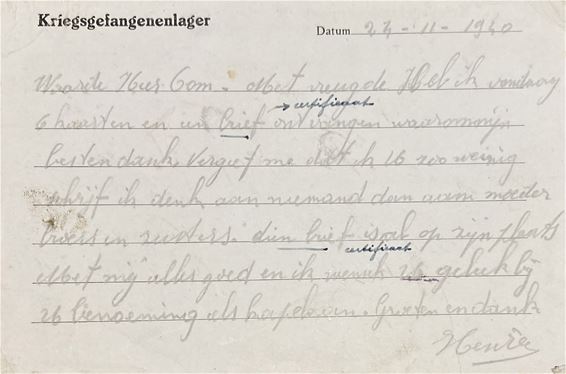 Kriegsgefangenenlager
Datum 24-11-1940
Waarde Heer Com. Met vreugde Heb ik vandaag
→ certificaat
6 kaarten en un brief ontvangen waarvoor mijn
besten dank Vergeef me dat ik 16 zoo weinig
schrijf ik denk aan niemand dan aan moeder
broers en zusters. dien brief is al op zijn plaats
certificaat
Met mij alles goed en ik wensch geluk bij
26 benoeming als kapelaan. Groeten en dank
Henri